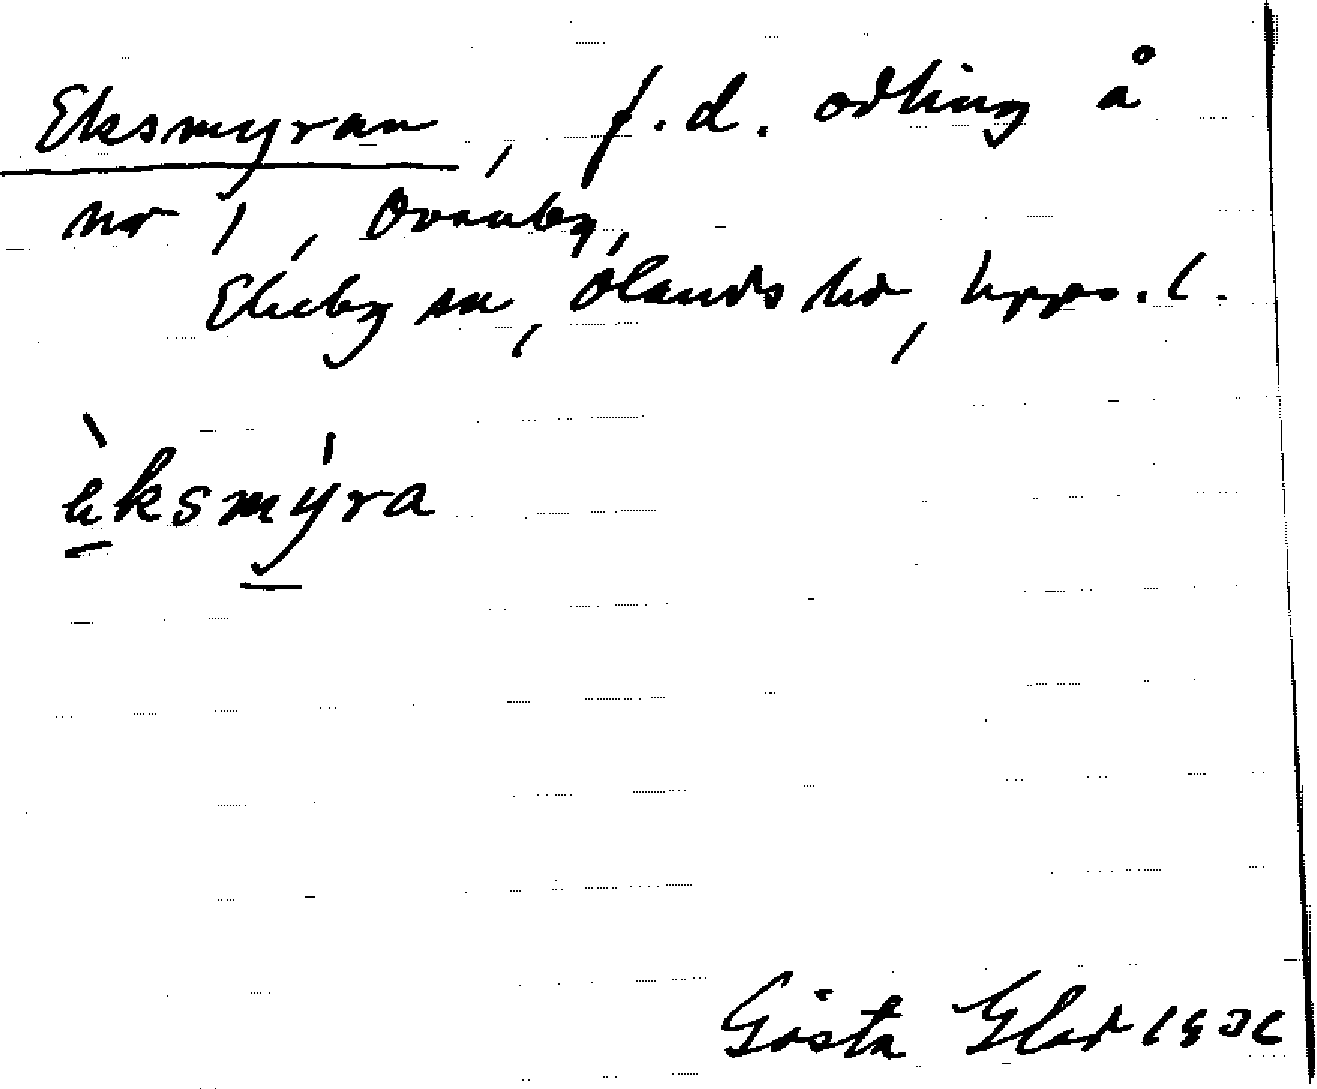 Eksmyran, f.d. odling å
nr 1, Ovanby,
Ekeby sn, Ölands hd, Upps. l.
èksmýra
Gösta Glad